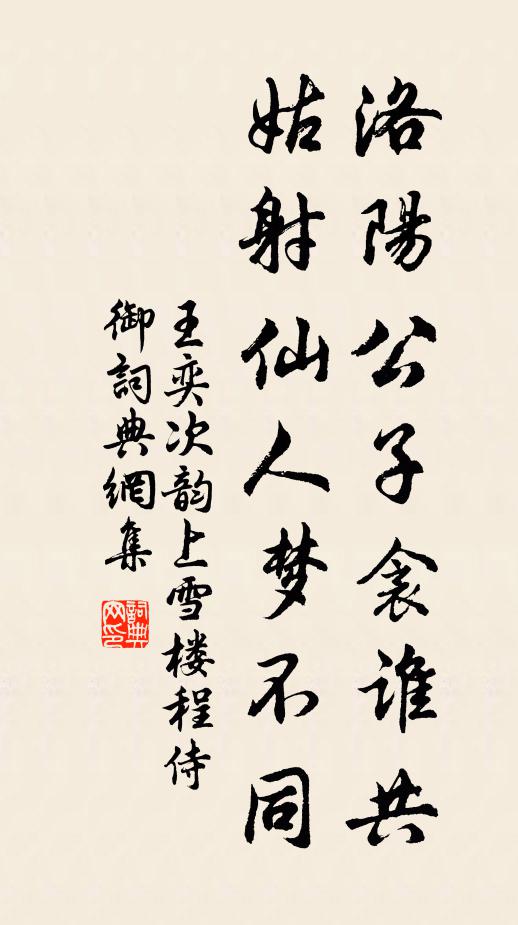 洛陽公子衾誰共
姑射仙人梦不同
王奕次韵上雪楼程侍
御詞典網集
詞典网印